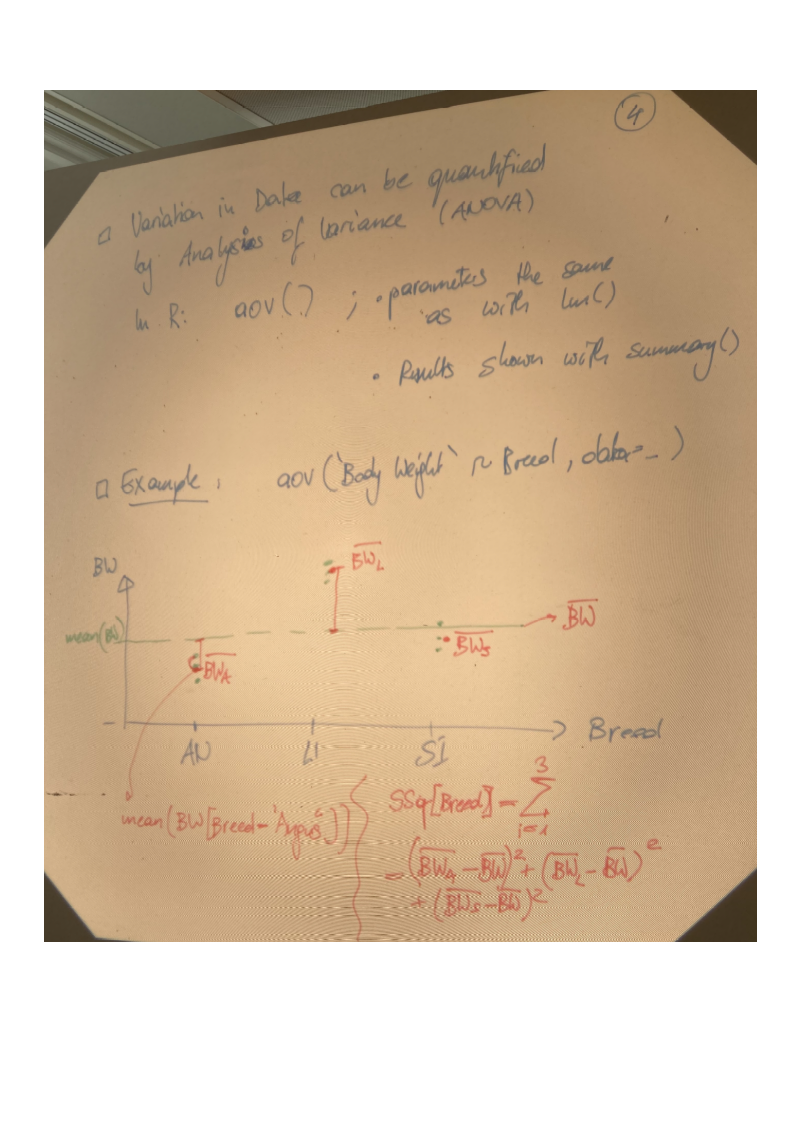 4
□ Variation in Data can be quantified
by Analysis of Variance (ANOVA)
In R: aov() ; • parameters the same
as with lm()
• Results shown with summary()
□ Example: aov(`Body Weight` ~ Breed, data=_)
BW
mean(BW)
BW̅_A
BW̅_L
BW̅_S
BW̅
AN LI SI Breed
mean(BW[Breed="Angus"])
SSq[Breed] = ∑_{i=1}^{3}
= (BW̅_A - BW̅)² + (BW̅_L - BW̅)²
+ (BW̅_S - BW̅)²